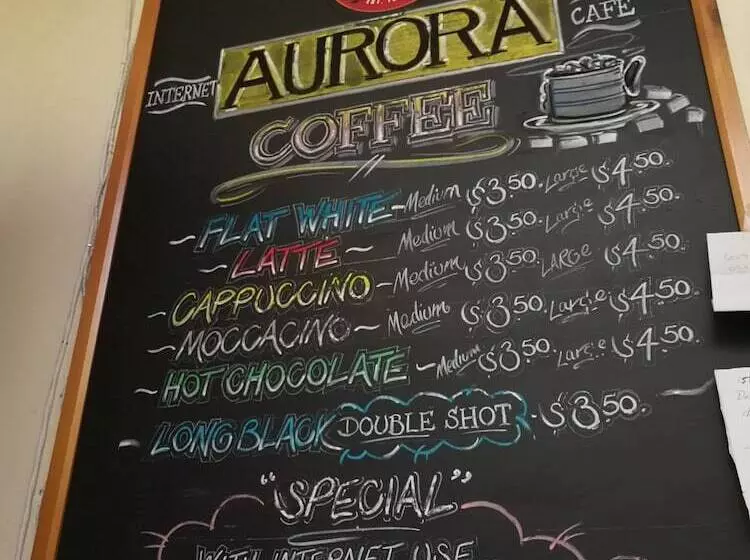 CAFE
AURORA
INTERNET
COFFEE
~ FLAT WHITE - Medium $3.50. Large $4.50.
~ LATTE ~ Medium $3.50. Large $4.50.
~ CAPPUCCINO - Medium $3.50. LARGE $4.50.
~ MOCCACINO ~ Medium $3.50. Large $4.50.
~ HOT CHOCOLATE - Medium $3.50. Large $4.50.
- LONG BLACK DOUBLE SHOT - $3.50.
"SPECIAL"
WITH INTERNET USE